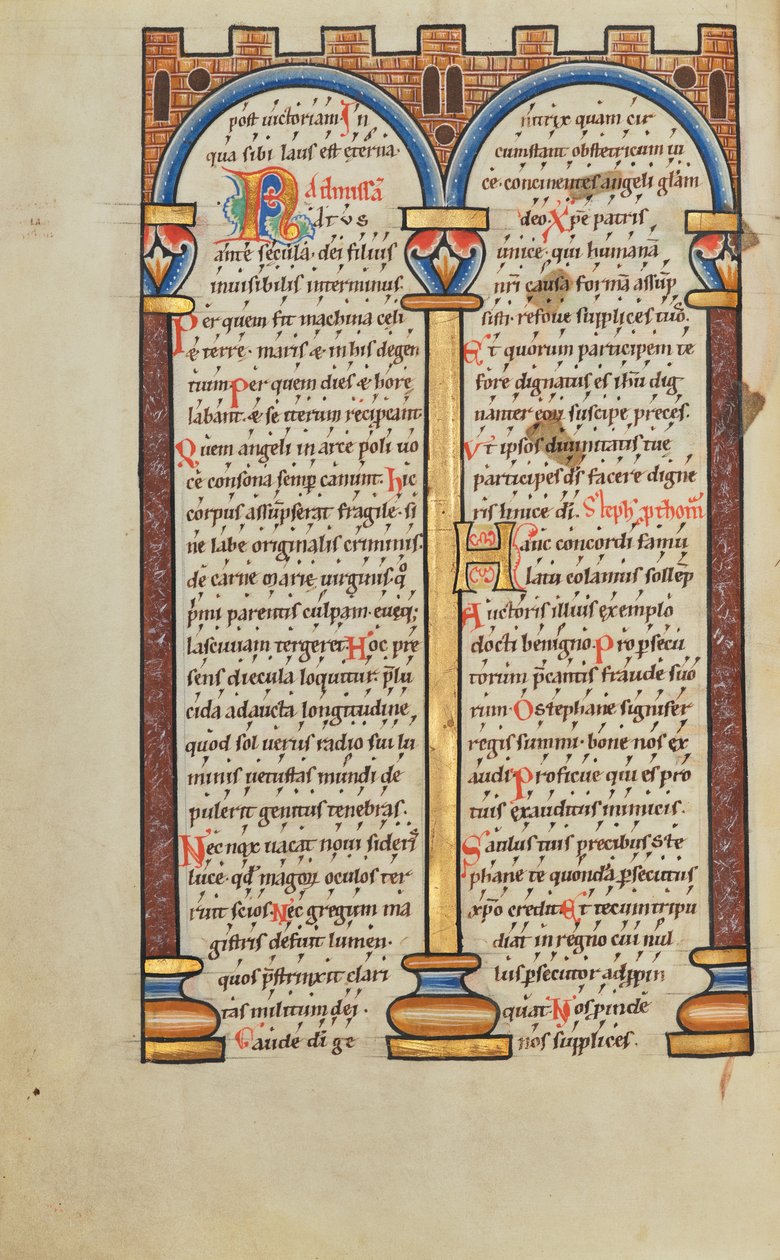 post uictoriam In
qua sibi laus est eterna.
N ad missā
atus
ante secula. dei filius
inuisibilis interminus.
Per quem fit machina celi
& terre. maris & in his degen
tium Per quem dies & hore
labant. & se iterum recipeant
Quem angeli in arce poli uo
ce consona semp canunt. hic
corpus assūpserat fragile. si
ne labe originalis criminis.
de carne marie uirginis. qͦ
pͥmi parentis culpam. eueq;
lasciuiam tergeret. Hoc pre
sens diecula loquitur. p̄lu
cida adaucta longitudine
quod sol uerus radio sui lu
minis uetustas mundi de
pulerit genitus tenebras.
Nec nox uacat noui siderͥs
luce. qd̄ magoꝝ oculos ter
ruit scios. Nec gregum ma
gistris defuit lumen.
quos p̄strinxit clari
tas militum dei.
Gaude dī ge
nitrix quam cir
cumstant obstetricum ui
ce. concinentes angeli glām
deo. Xp̄e patris
unice. qui humanā
nr̄i causa formā assūp
sisti. refoue supplices tuoͨs.
Et quorum participem te
fore dignatus es ih̄u dig
nanter eoꝝ suscipe preces.
Vt ipsos diuinitatis tue
participes d̄s facere digne
ris unice dī. Steph. ꝓthom̄
Hanc concordi famu
latu colamus sollēp
Auctoris illius exemplo
docti benigno. Pro ꝑsecu
torum p̄cantis fraude suo
rum. O stephane signifer
regis summi. bone nos ex
audi. Proficue qui es pro
tuis exauditus inimicis.
Paulus tuis precibus ste
phane te quondā ꝑsecutus
xp̄o credit. Et tecum tripu
diat in regno cui nul
lus ꝑsecutor adpin
quat. Nos ꝓinde
nos supplices.